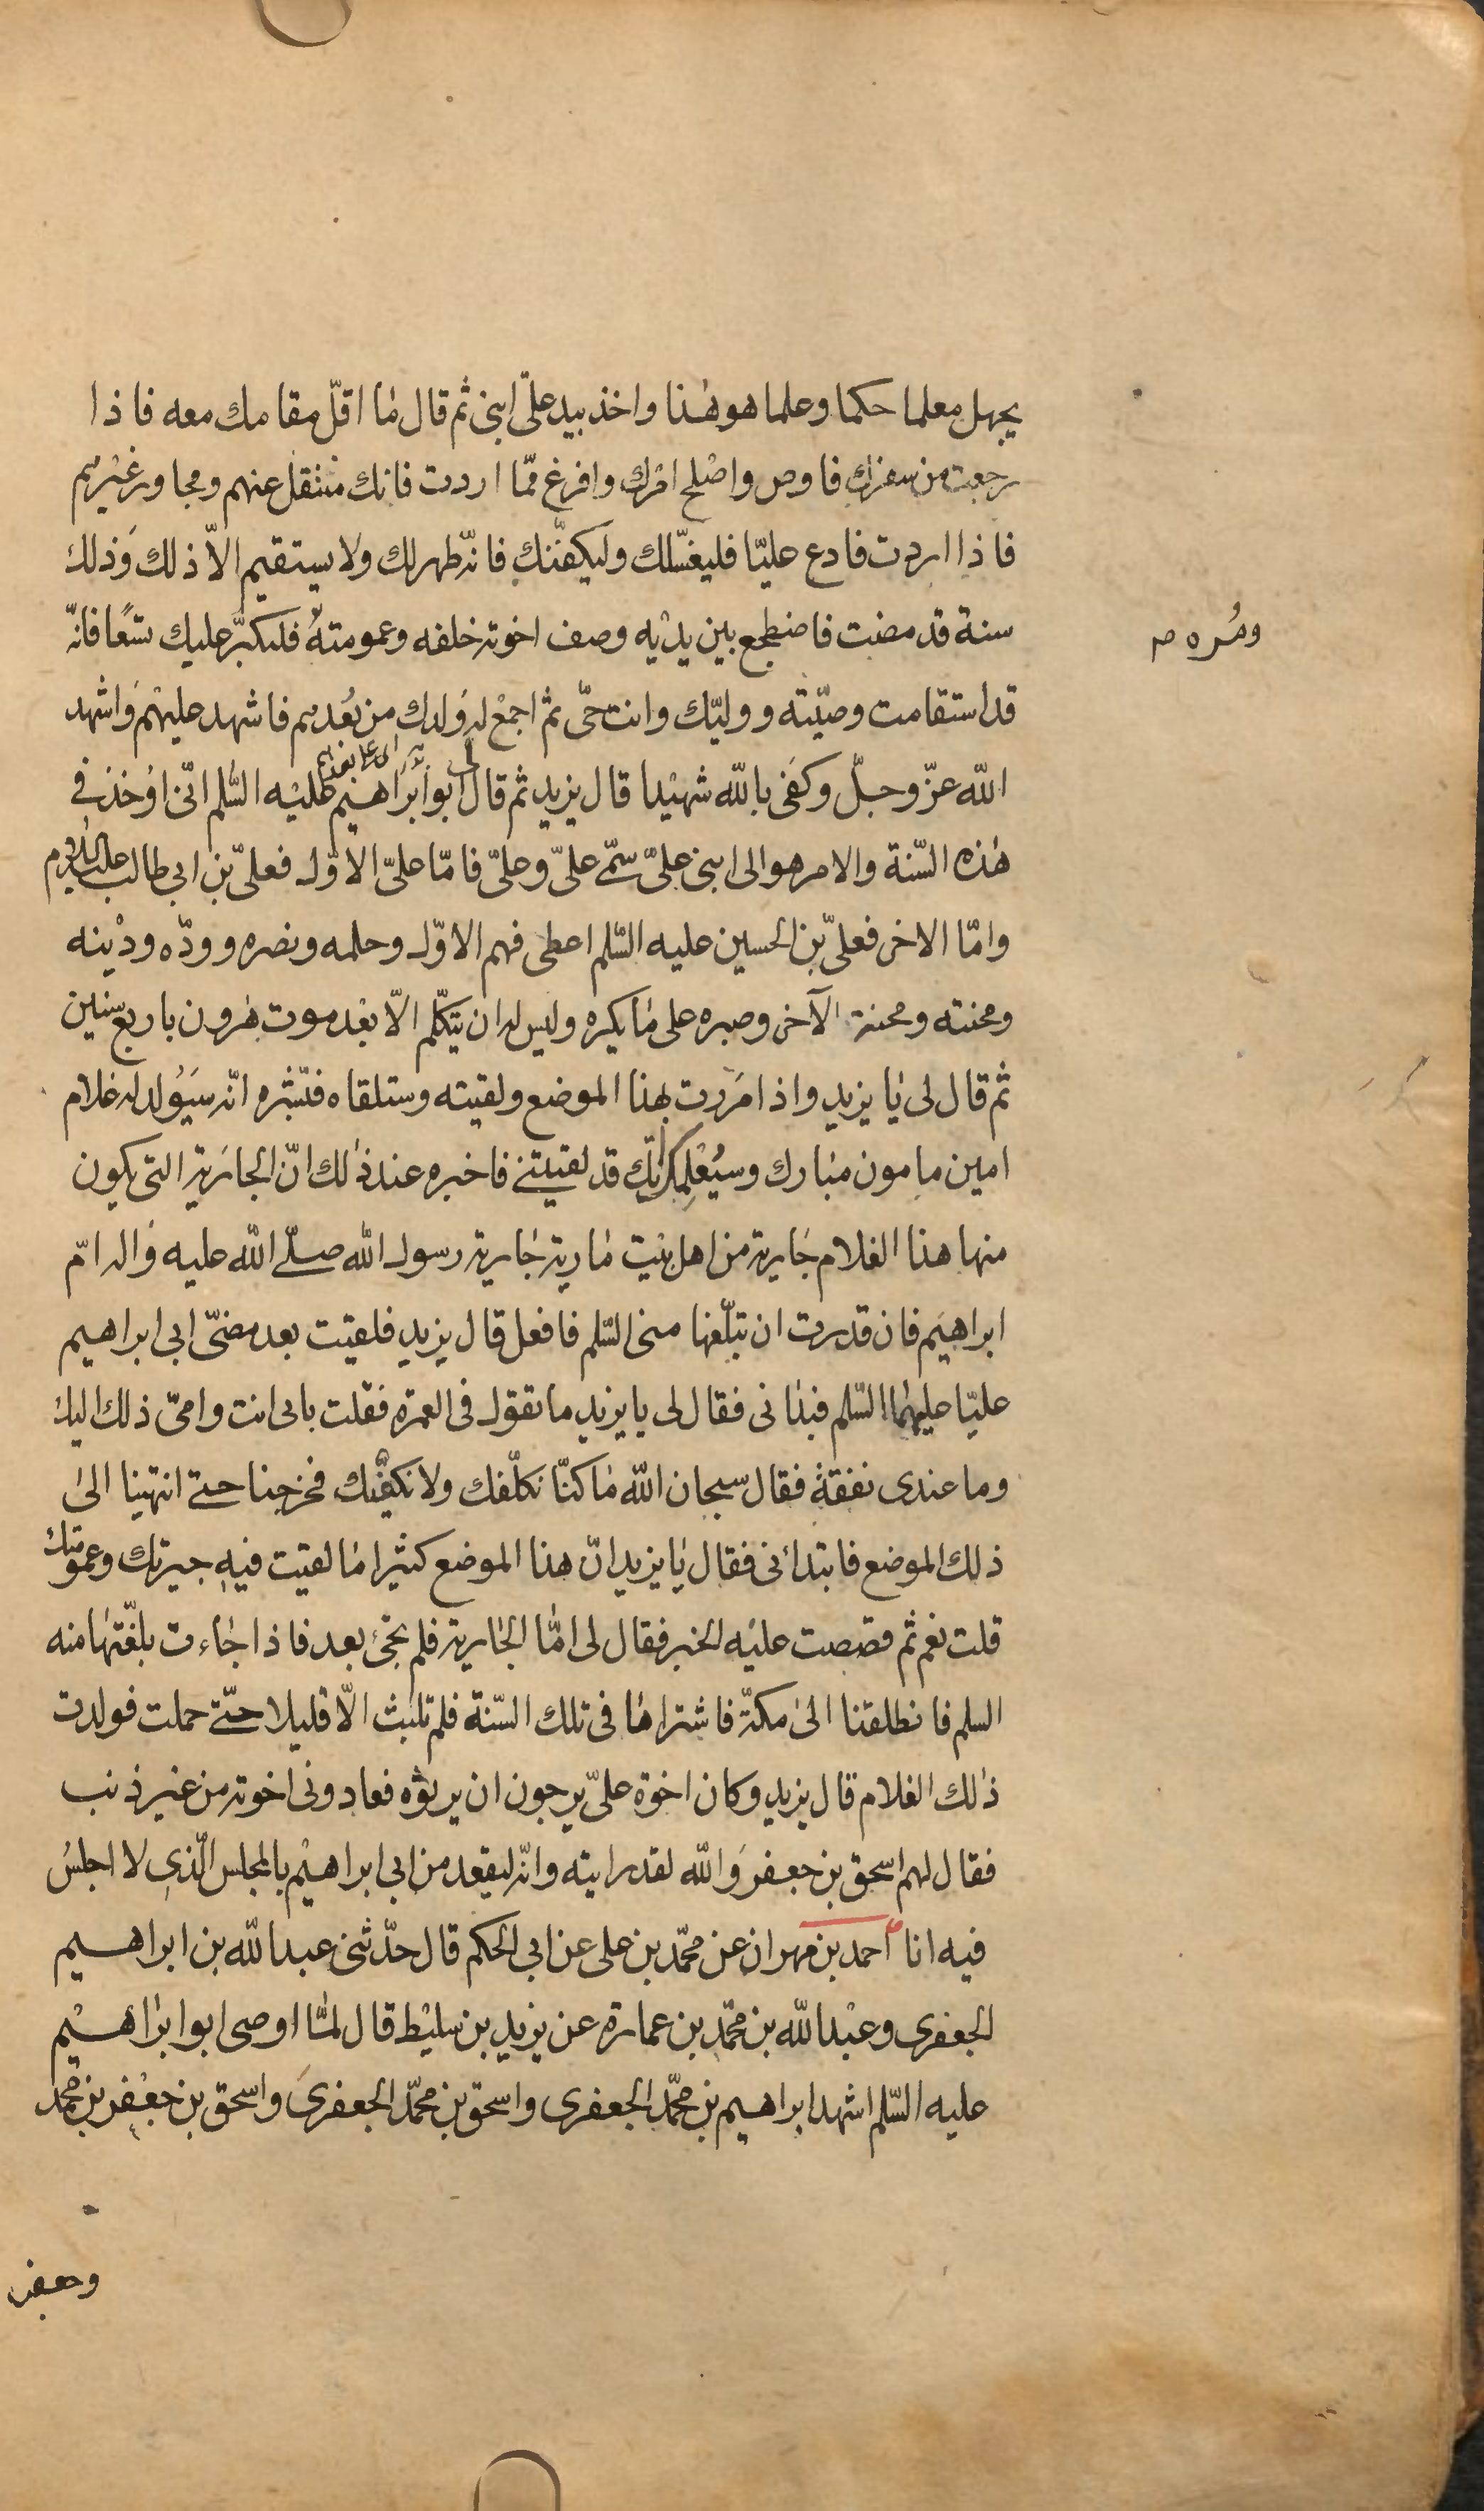 يجهل معلما حكما وعلما هو هٰذا واخذ بيد علىّ ابنى ثم قال مٰا اقلّ مقامك معه فاذا
رجعت من سفرك فاوص واصْلح امْرك وافرغ ممّا اردت فانك منتقل عنهم ومجاور غيْرهم
فاذا اردت فادع عليّا فليغسّلك وليكفّنك فانّه طهر لك ولا يستقيم الاّ ذلك وَذلك
سنة قد مضت فاضطجع بين يديْه وصف اخوته خلفه وعمومتهُ فليكبّر عليك تسْعًا فانّه
ومُره صـ
قد استقامت وصيّته ووليّك وانت حىّ ثم اجمعْ له وَلدك من بعْدهم فاشهد عليهْم وَاشهد
اللّه عزّ وجلّ وكفٰى باللّه شهيْدا قال يزيد ثم قال لى ابو ابرَاهيْم عليْه السّلم انّى اوُخذ فى
هٰذه السّنة والامر هو الى ابنى علىّ سمّى علىّ وعلىّ فامّا علىّ الاوّل فعلىّ بن ابى طالب عليه السلم
وامّا الاخر فعلىّ بن الحسين عليه السّلم اعطى فهم الاوّل وحلمه ونصره وودّه وديْنه
ومحنته ومحنة الآخر وصبره على مٰا يكره وليس له ان يتكلّم الاّ بعْد موت هٰرون باربع سنين
ثم قال لى يٰا يزيد واذا مَررت بهٰذا الموضع ولقيته وستلقاه فبشّره انّه سَيوُلد له غلام
امين مامون مبٰارك وسيُعْلِمك انّك قد لقيتنى فاخبره عند ذٰلك انّ الجارَية التى يكون
منها هذا الغلام جٰارية من اهل بيْت مٰارية جٰارية رسول اللّه صلّى اللّه عليه وَاله امّ
ابراهيَم فان قدرت ان تبلّغها منى السّلم فافعل قال يزيد فلقيت بعد مضىّ ابى ابراهيم
عليّا عليهمٰا السّلم فبدٰانى فقال لى يا يزيد ما تقول فى العمرة فقلت بابى انت وامّى ذلك اليك
وما عندى نفقةْ فقال سبحان اللّه مٰا كنّا نكلّفك ولا نكفيْك فخرجنا حتى انتهينا الىٰ
ذلك الموضع فابتدائى فقال يٰا يزيد انّ هذا الموضع كثيْرا مٰا لقيت فيه جيرتك وعمومتك
قلت نعم ثم قصصت عليْه الخبر فقال لى امّٰا الجٰارية فلم تجئ بعد فاذا جٰاءت بلغّتهٰا منه
السلم فانطلقنا الىٰ مكّة فاشتراهٰا فى تلك السّنة فلم تلبث الاّ قليلا حتّى حملت فولدت
ذٰلك الغلام قال يزيد وكان اخوة علىّ يرجون ان يرثوْه فعادونى اخوته من غير ذنب
فقال لهم اسحق بن جعفرَ وَاللّه لقد رايته وانّه ليقعد من ابى ابراهيْم بالمجلس الّذى لا اجلسُ
فيه انا احمد بن مهران عن محمّد بن على عن ابى الحكم قال حدّثنى عبد اللّه بن ابراهيم
الجعفرى وعبْد اللّه بن محمّد بن عمارة عن يزيد بن سليْط قال لمّٰا اوصى ابو ابرٰاهيْم
عليه السّلم اشهد ابراهيم بن محمّد الجعفرى واسحق بن محمّد الجعفرى وَاسحق بن جعْفر بن محمّد
وجعفر